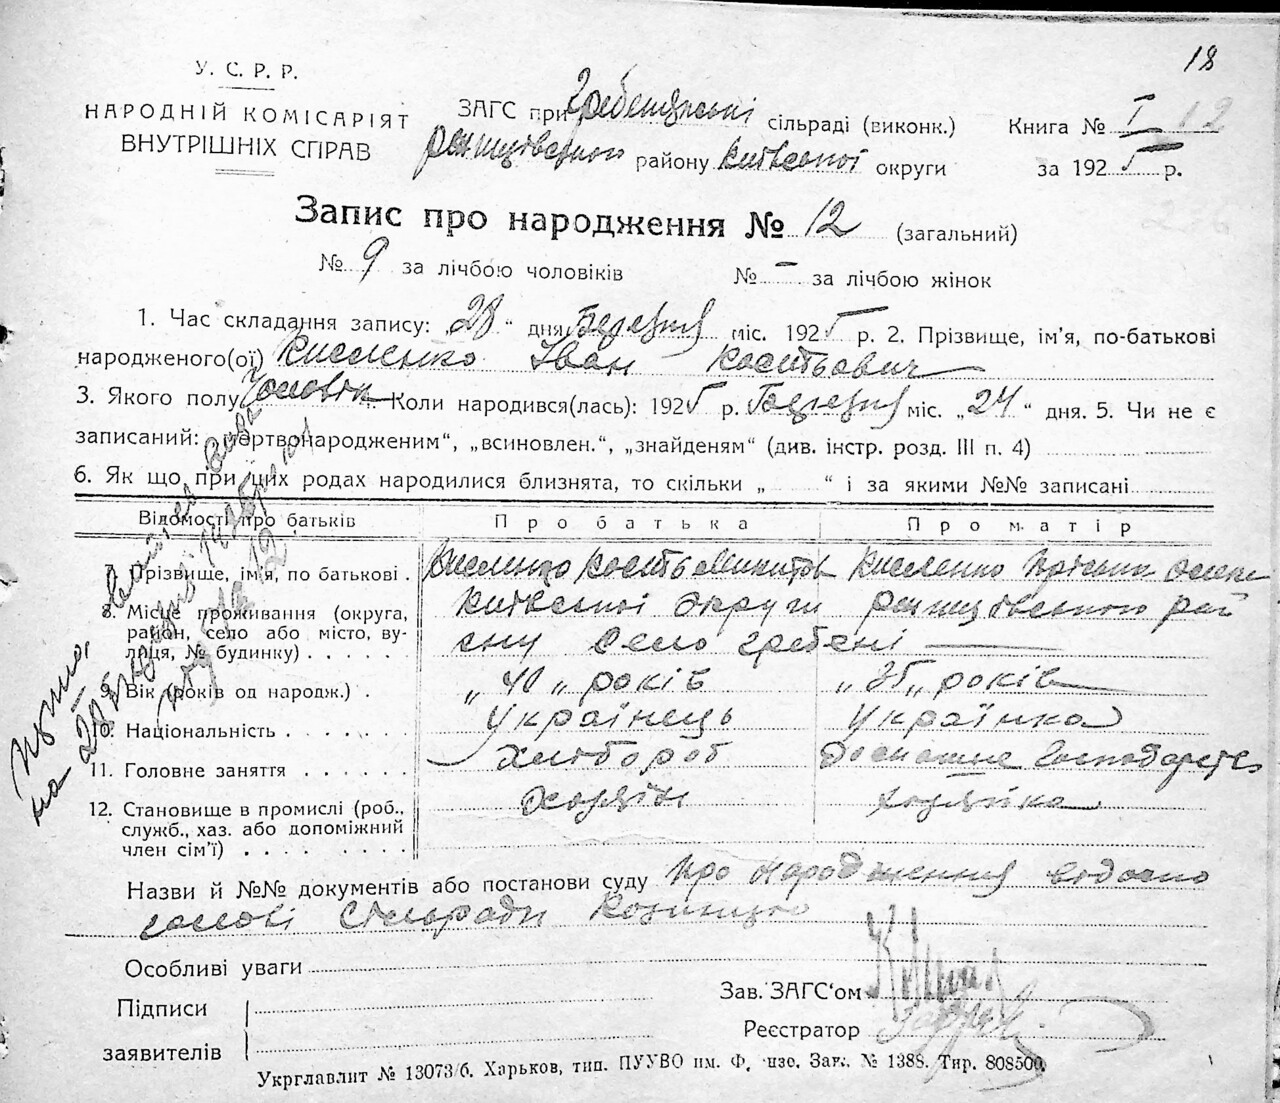 18
У. С. Р. Р.
НАРОДНІЙ КОМІСАРІЯТ
ВНУТРІШНІХ СПРАВ
ЗАГС при Гребенській сільраді (виконк.)
району Київської округи
Книга № I 12
за 1925 р.
Запис про народження № 12 (загальний)
№ 9 за лічбою чоловіків № – за лічбою жінок
1. Час складання запису: „28“ дня Березня міс. 1925 р. 2. Прізвище, ім'я, по-батькові
народженого(ої) Кисленко Іван Костьович
3. Якого полу Чоловік 4. Коли народився(лась): 1925 р. Березня міс. „24“ дня. 5. Чи не є
записаний: „мертвонародженим“, „всиновлен.“, „знайденям“ (див. інстр. розд. III п. 4)
6. Як що при цих родах народилися близнята, то скільки „ “ і за якими №№ записані
Відомості про батьків Про батька Про матір
7. Прізвище, ім'я, по батькові . Кисленко Кость Микитов Кисленко
8. Місце проживання (округа, Київської округи
район, село або місто, ву- ону село Гребені
лиця, № будинку) . . . . .
9. Вік (років од народж.) . „40„ років „35„ років
10. Національність . . . . . Українець Українка
11. Головне заняття . . . . . . Хлібороб Домашне Господарство
12. Становище в промислі (роб., Хазяїн хазяйка
служб., хаз. або допоміжний
член сім'ї) . . . . . . . .
Назви й №№ документів або постанови суду Про народження
голові Сільради
Особливі уваги
Підписи
заявителів
Зав. ЗАГС'ом
Реєстратор
Укрглавліт № 13073/б. Харьков, тип. ПУУВО им. Ф. Зак. № 1388. Тир. 808500.